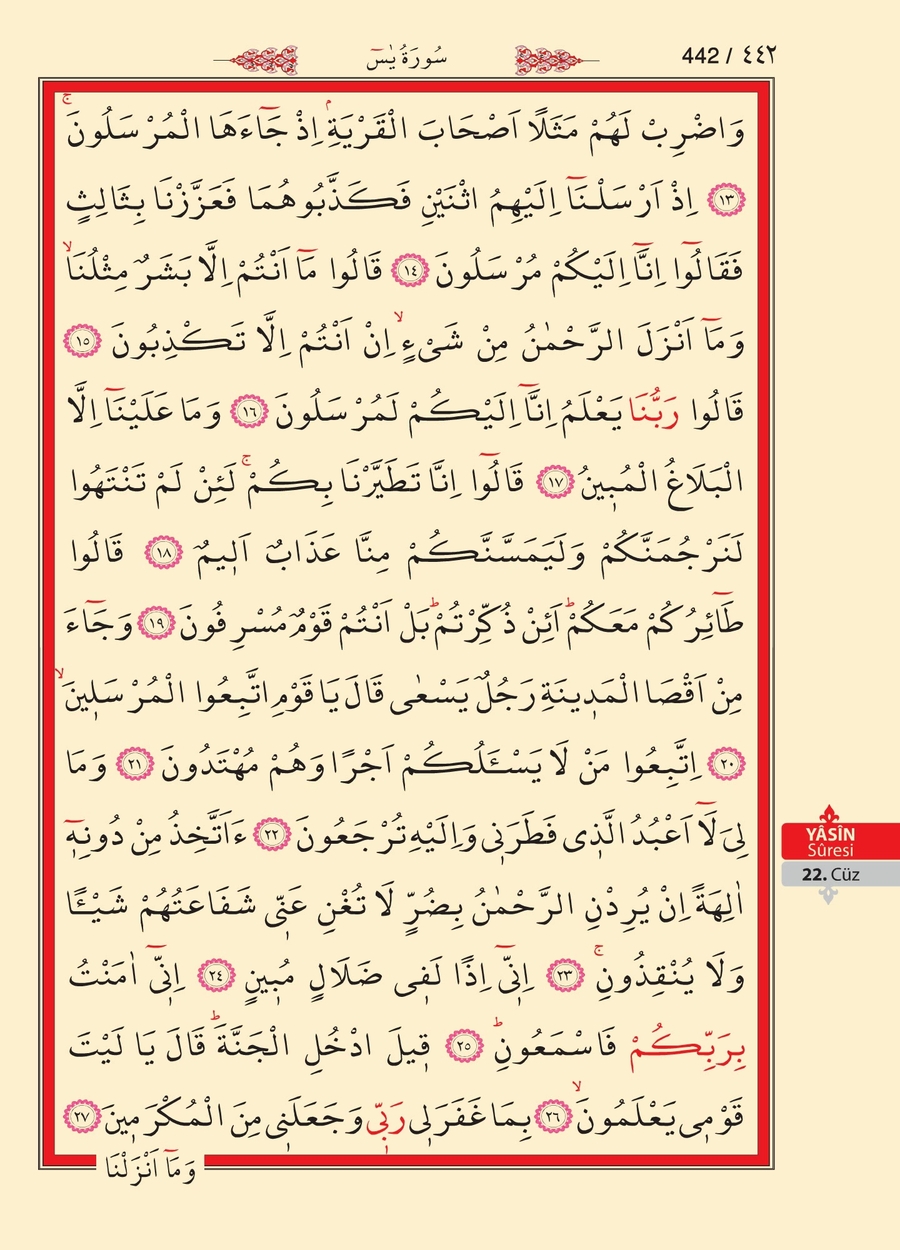 442 / ٤٤٢
سُورَةُ يٰسٓ
وَاضْرِبْ لَهُمْ مَثَلًا اَصْحَابَ الْقَرْيَةِۢ اِذْ جَٓاءَهَا الْمُرْسَلُونَۚ
﴿١٣﴾ اِذْ اَرْسَلْنَٓا اِلَيْهِمُ اثْنَيْنِ فَكَذَّبُوهُمَا فَعَزَّزْنَا بِثَالِثٍ
فَقَالُٓوا اِنَّٓا اِلَيْكُمْ مُرْسَلُونَ ﴿١٤﴾ قَالُوا مَٓا اَنْتُمْ اِلَّا بَشَرٌ مِثْلُنَاۙ
وَمَٓا اَنْزَلَ الرَّحْمٰنُ مِنْ شَيْءٍۙ اِنْ اَنْتُمْ اِلَّا تَكْذِبُونَ ﴿١٥﴾
قَالُوا رَبُّنَا يَعْلَمُ اِنَّٓا اِلَيْكُمْ لَمُرْسَلُونَ ﴿١٦﴾ وَمَا عَلَيْنَٓا اِلَّا
الْبَلَاغُ الْمُب۪ينُ ﴿١٧﴾ قَالُٓوا اِنَّا تَطَيَّرْنَا بِكُمْۚ لَئِنْ لَمْ تَنْتَهُوا
لَنَرْجُمَنَّكُمْ وَلَيَمَسَّنَّكُمْ مِنَّا عَذَابٌ اَل۪يمٌ ﴿١٨﴾ قَالُوا
طَٓائِرُكُمْ مَعَكُمْۜ اَئِنْ ذُكِّرْتُمْۜ بَلْ اَنْتُمْ قَوْمٌ مُسْرِفُونَ ﴿١٩﴾ وَجَٓاءَ
مِنْ اَقْصَا الْمَد۪ينَةِ رَجُلٌ يَسْعٰى قَالَ يَا قَوْمِ اتَّبِعُوا الْمُرْسَل۪ينَۙ
﴿٢٠﴾ اِتَّبِعُوا مَنْ لَا يَسْـَٔلُكُمْ اَجْرًا وَهُمْ مُهْتَدُونَ ﴿٢١﴾ وَمَا
لِيَ لَٓا اَعْبُدُ الَّذ۪ي فَطَرَن۪ي وَاِلَيْهِ تُرْجَعُونَ ﴿٢٢﴾ ءَاَتَّخِذُ مِنْ دُونِه۪ٓ
اٰلِهَةً اِنْ يُرِدْنِ الرَّحْمٰنُ بِضُرٍّ لَا تُغْنِ عَنّ۪ي شَفَاعَتُهُمْ شَيْـًٔا
وَلَا يُنْقِذُونِۚ ﴿٢٣﴾ اِنّ۪ٓي اِذًا لَف۪ي ضَلَالٍ مُب۪ينٍ ﴿٢٤﴾ اِنّ۪ٓي اٰمَنْتُ
بِرَبِّكُمْ فَاسْمَعُونِۜ ﴿٢٥﴾ ق۪يلَ ادْخُلِ الْجَنَّةَۜ قَالَ يَا لَيْتَ
قَوْم۪ي يَعْلَمُونَۙ ﴿٢٦﴾ بِمَا غَفَرَل۪ي رَبّ۪ي وَجَعَلَن۪ي مِنَ الْمُكْرَم۪ينَ ﴿٢٧﴾
وَمَٓا اَنْزَلْنَا
YÂSİN
Sûresi
22. Cüz